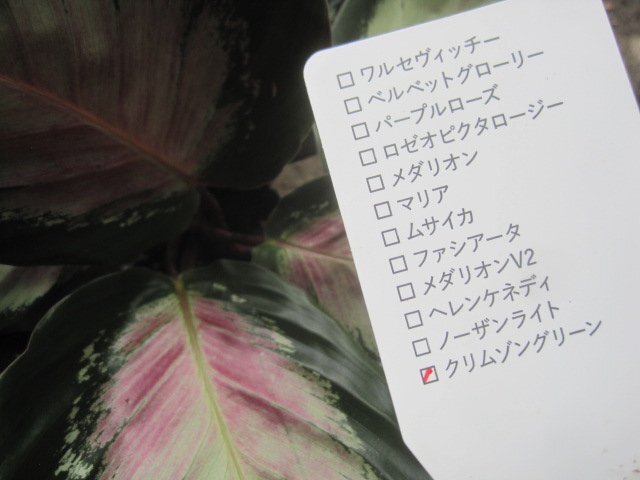 □ワルセヴィッチー
□ベルベットグローリー
□パープルローズ
□ロゼオピクタロージー
□メダリオン
□マリア
□ムサイカ
□ファシアータ
□メダリオンV2
□ヘレンケネディ
□ノーザンライト
☑クリムゾングリーン